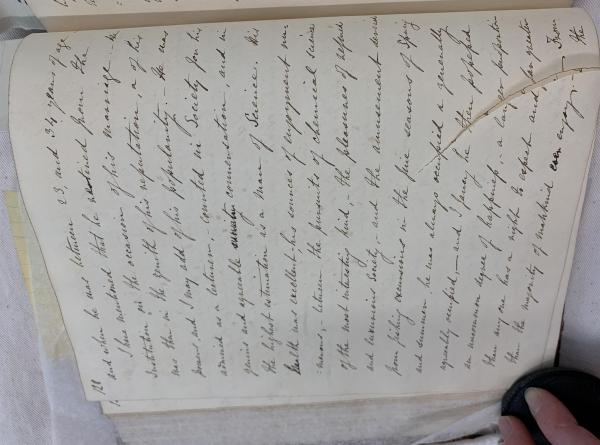 12
and when he was between 23, and 34 years of age
I have mentioned that he retired from the
Institution, on the occasion of his marriage. He
was then in the zenith of his reputation, & of his
powers, and I may add of his popularity. He was
admired as a lecturer, courted in Society for his
genius and agreeable conversation, and in
the highest estimation as a man of Science. His
health was excellent, his sources of enjoyment nu-
merous, between the pursuits of chemical science
of the most interesting kind, – the pleasures of refined
and luxurious Society, and the amusement derived
from fishing excursions in the fine seasons of Spring
and summer he was always occupied & generally
agreeably occupied, – and I fancy he then possessed
an uncommon degree of happiness, – a larger proportion
than any one has a right to expect and, far greater
than the majority of mankind ever enjoy. – From
the